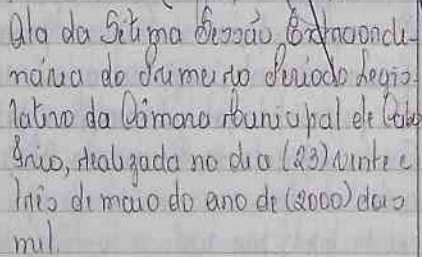 Ata da Sétima Sessão Extraordi-
nária do Primeiro Período Legis-
lativo da Câmara Municipal de Cabo
Frio, realizada no dia (23) vinte e
três de maio do ano de (2000) dois
mil.